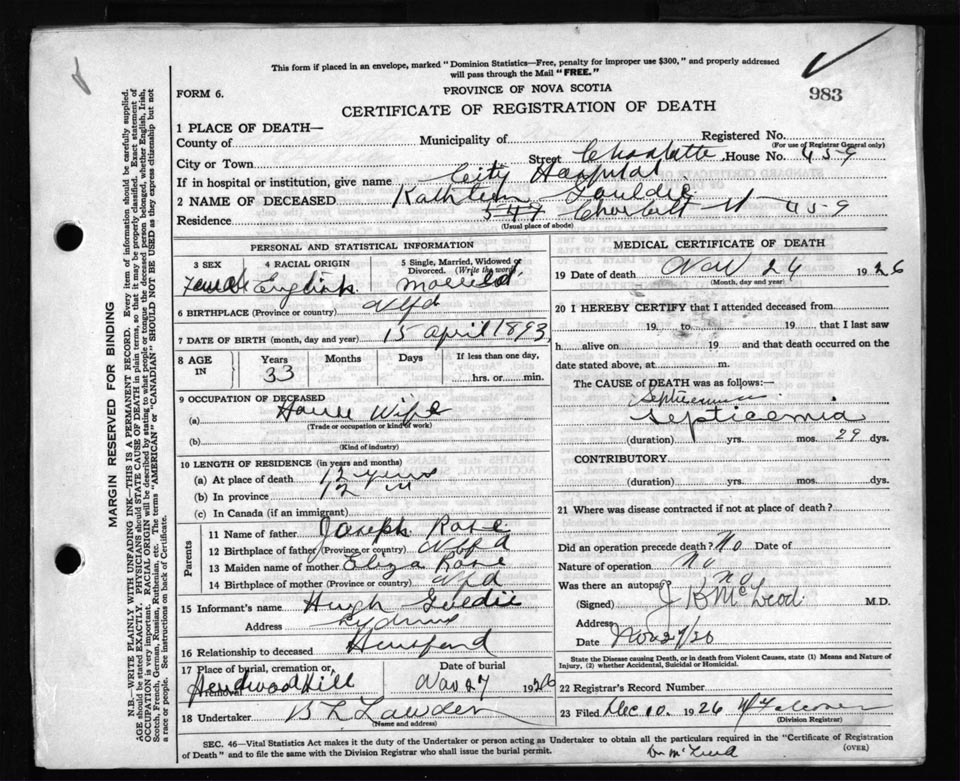 This form if placed in an envelope, marked "Dominion Statistics—Free, penalty for improper use $300," and properly addressed
will pass through the Mail "FREE."
983
FORM 6.
PROVINCE OF NOVA SCOTIA
CERTIFICATE OF REGISTRATION OF DEATH
MARGIN RESERVED FOR BINDING
N.B.—WRITE PLAINLY WITH UNFADING INK—THIS IS A PERMANENT RECORD. Every item of information should be carefully supplied.
AGE should be stated EXACTLY. PHYSICIANS should STATE CAUSE OF DEATH in plain terms, so that it may be properly classified. Exact statement of
OCCUPATION is very important. RACIAL ORIGIN will be described by stating to what people or tongue the deceased person belonged, whether English, Irish,
Scotch, French, German, Russian, Ruthenian, etc. The terms "AMERICAN" or "CANADIAN" SHOULD NOT BE USED as they express citizenship but not
a race or people. See instructions on back of Certificate.
1 PLACE OF DEATH—
County of Municipality of Registered No.
(For use of Registrar General only)
City or Town Street Charlotte, House No. 459
If in hospital or institution, give name City Hospital
2 NAME OF DECEASED Kathleen Gouldie
Residence 547 Charlotte St 459
(Usual place of abode)
PERSONAL AND STATISTICAL INFORMATION
3 SEX 4 RACIAL ORIGIN 5 Single, Married, Widowed or Divorced. (Write the word)
Female English married
6 BIRTHPLACE (Province or country) Nfd
7 DATE OF BIRTH (month, day and year) 15 april 1893
8 AGE IN Years Months Days If less than one day,
33 hrs. or min.
9 OCCUPATION OF DECEASED
(a) House Wife
(Trade or occupation or kind of work)
(b)
(Kind of industry)
10 LENGTH OF RESIDENCE (in years and months)
(a) At place of death 12 years
(b) In province 12 "
(c) In Canada (if an immigrant)
Parents
11 Name of father Joseph Rose
12 Birthplace of father (Province or country) Nfd
13 Maiden name of mother Eliza Rose
14 Birthplace of mother (Province or country) Nfd
15 Informant's name Hugh Goldie
Address Sydney
16 Relationship to deceased Husband
17 Place of burial, cremation or removal Date of burial
Hardwood Hill Nov 27 1926
18 Undertaker
(Name and address)
MEDICAL CERTIFICATE OF DEATH
19 Date of death Nov 24 1926
(Month, day and year)
20 I HEREBY CERTIFY that I attended deceased from
19 to 19 , that I last saw
h alive on 19 and that death occurred on the
date stated above, at m.
The CAUSE of DEATH was as follows:—
Septicemia
Septicemia
(duration) yrs. mos. 29 dys.
CONTRIBUTORY
(duration) yrs. mos. dys.
21 Where was disease contracted if not at place of death?
Did an operation precede death? No Date of
Nature of operation No
Was there an autopsy no
(Signed) J B McLeod M.D.
Address
Date Nov 27/26
State the Disease causing Death, or in death from Violent Causes, state (1) Means and Nature of
Injury, (2) whether Accidental, Suicidal or Homicidal.
22 Registrar's Record Number
23 Filed Dec 10 1926
(Division Registrar)
SEC. 46—Vital Statistics Act makes it the duty of the Undertaker or person acting as Undertaker to obtain all the particulars required in the "Certificate of Registration
of Death" and to file the same with the Division Registrar who shall issue the burial permit. (OVER)
Dr McLeod